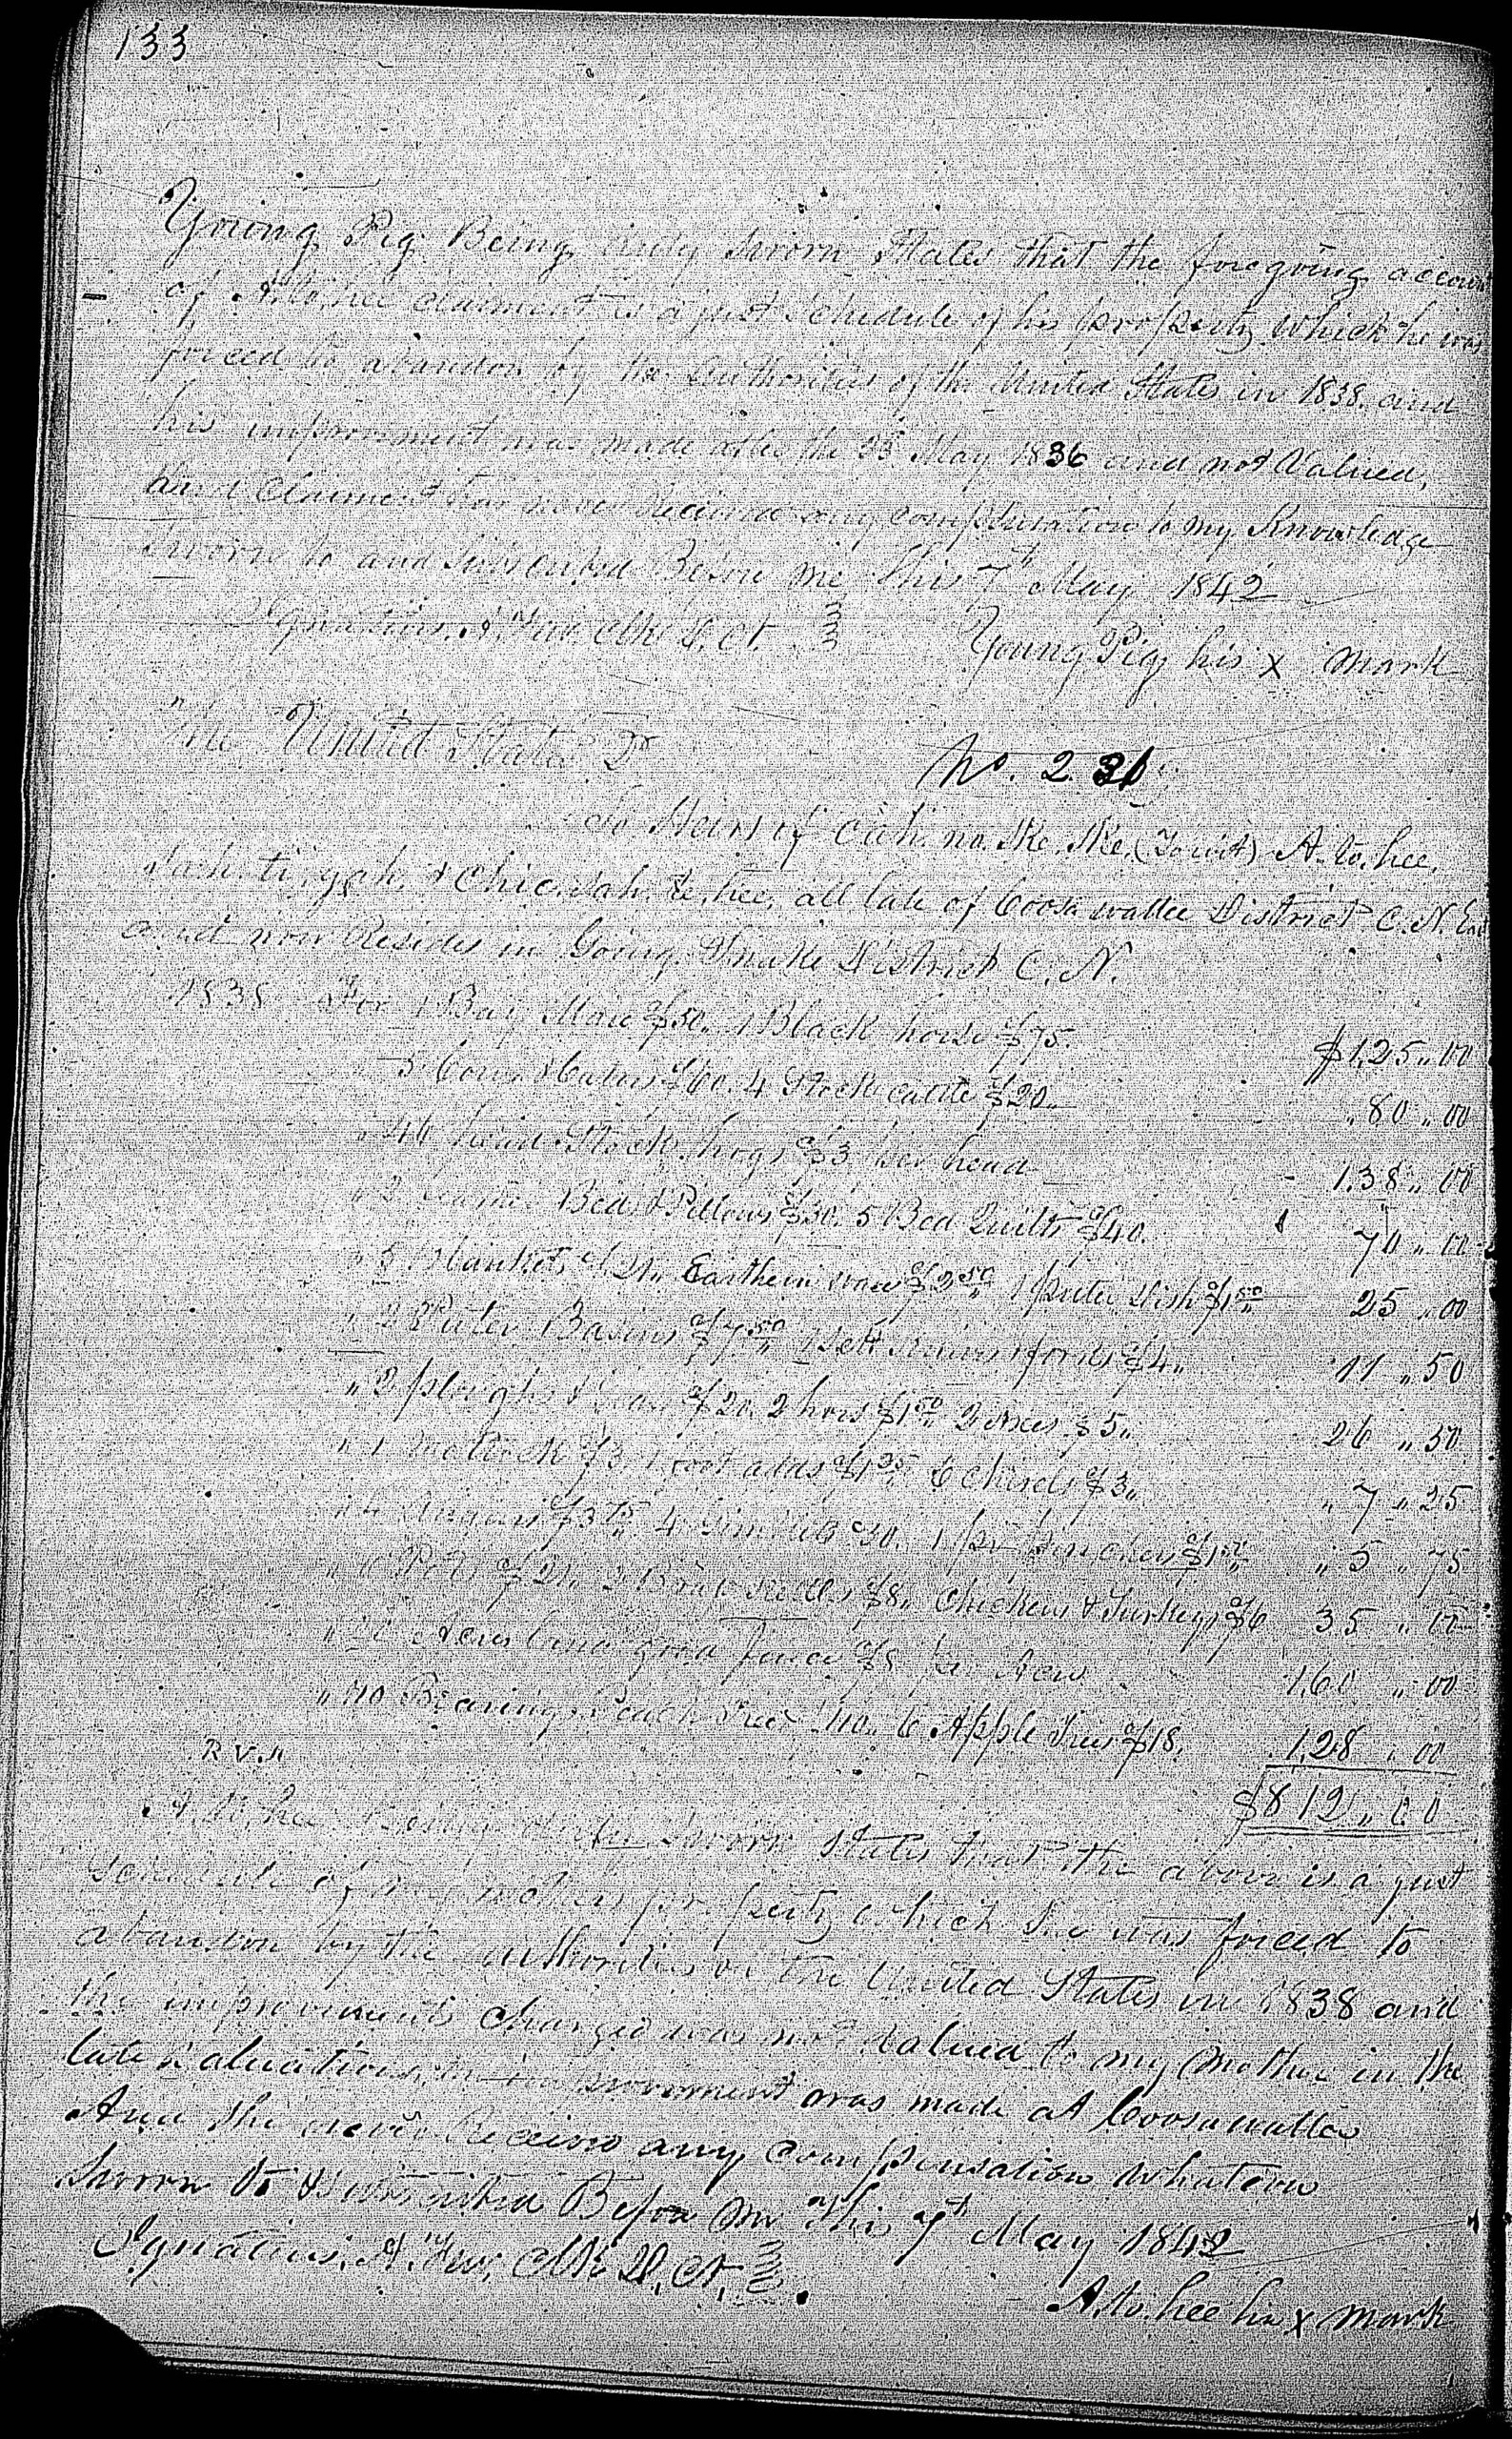 133
Young Pig Being duly Sworn States that the foregoing account
of A.to.hee claimant is a just Schedule of his property which he was
forced to abandon by the Authorities of the United States in 1838. and
his improvement was made after the 23 May 1836 and not Valued,
and Claimant has never Received any compensation to my Knowledge
Sworn to and Subscribed Before me this 7th May 1842
Ignatius A. Few Clk D. Ct.
Young Pig his x mark
The United States Dr
No. 2 36
To Heirs of Cah.no.ske.ske. (To wit) A.to.hee,
& Chic.sah.te.hee, all late of Coosawattee District C.N. East
and now Resides in Going Snake District C.N.
1838 For 1 Bay Mare $50. 1 Black horse $75. $125,,00
5 Cows & Calves $60. 4 Stock cattle $20,, ,,80,,00
,, 46 head Stock hogs $3 per head - 138,,00
,, 3 Beds & Pillows $30. 5 Bed Quilts $40. 70,,00
,, 5 Blankets $21,, Earthern ware $2.50 1 puter dish $1.50 25,,00
,, 2 Puter Basins $7.50 1 Sett Knives & forks $4,, 11,,50
,, 2 ploughs & Gear $20. 2 hoes $1.50 2 axes $5,, 26,,50
,, 1 Mattock $3. 1 foot adds $1.25 6 Chisels $3,, ,,7,,25
,, 4 Augurs $3.75 4 Gimblets 50. 1 pr $1.50 ,,5,,75
,, 6 Pots $21,, 2 $8,, Chickens & Turkeys $6 35,,00
,, 20 Acres land good fence $8 pr Acre 160,,00
,, Bearing Peach Trees 110,, 6 Apple Trees $18. 128,,00
R.V.H $812,,00
A.to.hee Being duly Sworn States that the above is a just
Schedule of my mothers property which she was forced to
abandon by the authorities of the United States in 1838 and
the improvements charged was not Valued to my mother in the
late valuations, the improvement was made at Coosawattee
And she never Received any compensation whatever
Sworn to & Subscribed Before me this 7th May 1842
Ignatius. A. Few, Clk D. Ct.
A.to.hee his x mark